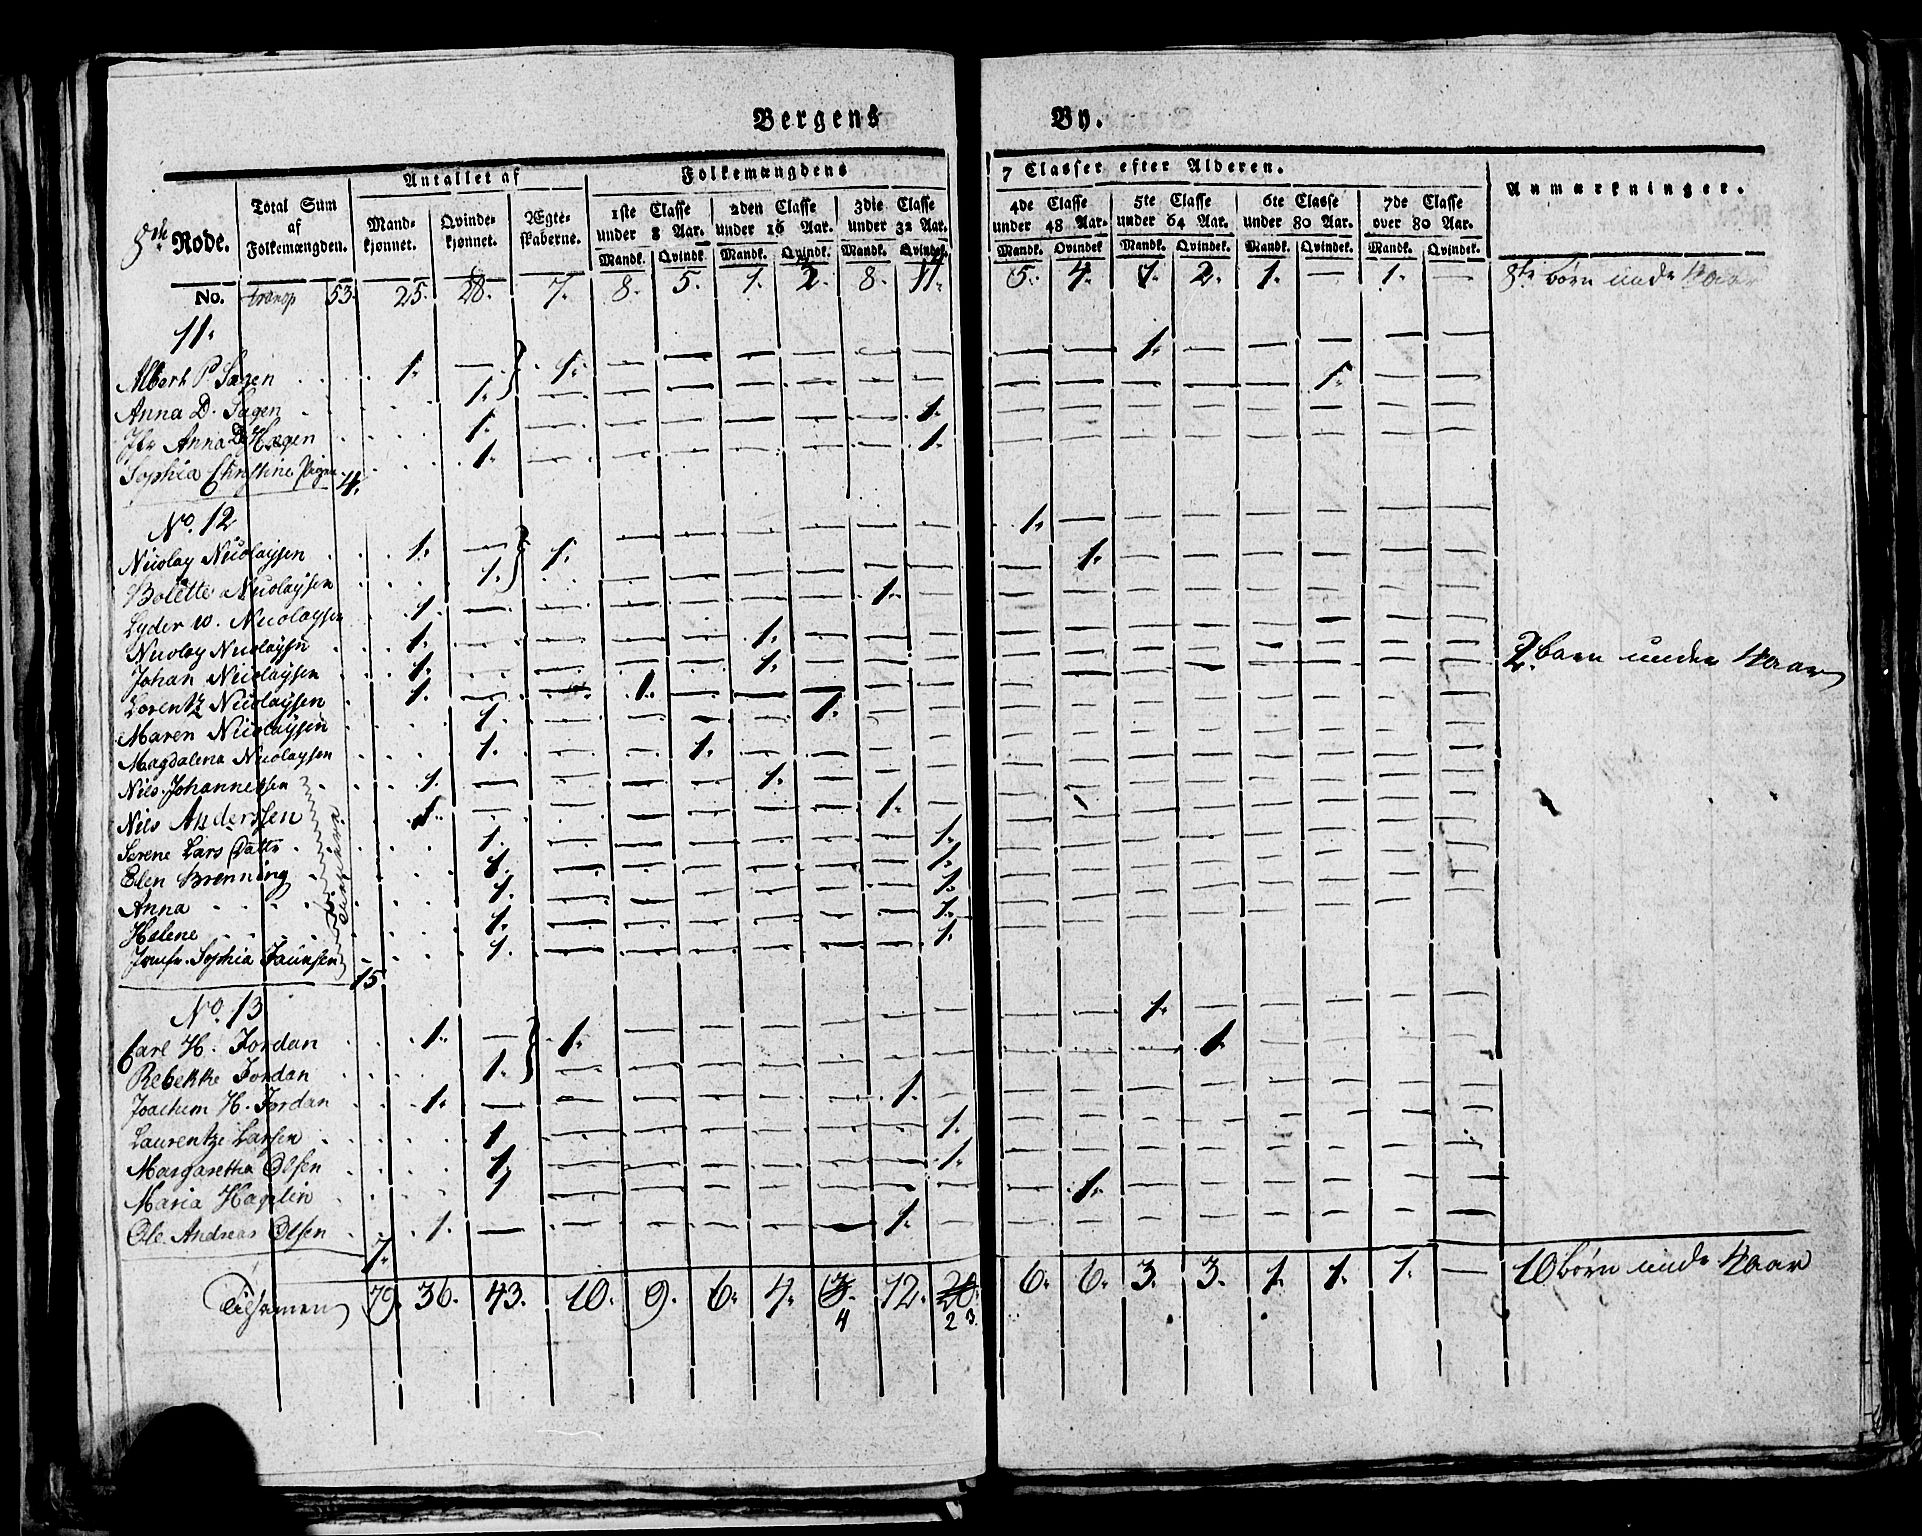 Bergens By.
8de Rode.
Total Sum af Folkemængden.
Antallet af
Mandkjønnet. Qvindekjønnet. Ægteskaberne.
Folkemængdens 7 Classer efter Alderen.
1ste Classe under 8 Aar. 2den Classe under 16 Aar. 3die Classe under 32 Aar. 4de Classe under 48 Aar. 5te Classe under 64 Aar. 6te Classe under 80 Aar. 7de Classe over 80 Aar.
Mandk. Qvindk. Mandk. Qvindk. Mandk. Qvindek. Mandk. Qvindek Mandk. Qvindek. Mandk. Qvindek. Mandk. Qvindek.
Anmærkninger.
No. transp 53. 25. 28. 7. 8. 5. 1. 8. 11. 5. 4. 1. 2. 1. — 1. — 8te børn unde 4 aar
11.
Albert P Sagen 1. — 1. — — — — — — — — 1. — — — — —
Anna D. Sagen 1. — — — — — — — — — — — 1. — —
Jfr Anna D Hagen 1. — — — — — 1. — — — — — — — —
Sophia Christine Pigen 4. 1. — — — — — 1. — — — — — — — —
No. 12
Nicolay Nicolaysen 1. — 1. — — — — — — 1. — — — — — — —
Bolette Nicolaysen 1. — — — — — — — 1. — — — — — —
Lyder W. Nicolaysen 1. — — — — — — 1. — — — — — — — — —
Nicolay Nicolaysen 1. — — — — 1. — — — — — — — — — — —
Johan Nicolaysen 1. — — — — 1. — — — — — — — — — — — 2. barn under 4 aar
Lorentz Nicolaysen 1. — — 1. — — — — — — — — — — — — —
Maren Nicolaysen 1. — — — — 1. — — — — — — — — — —
Magdalena Nicolaysen 1. — — 1. — — — — — — — — — — — —
Nils Johannessen 1. — — — — 1. — — — — — — — — — — —
Nils Anderssen 1. — — — — — — 1. — — — — — — — — —
Serene Lars Dattr 1. — — — — — — 1. — — — — — — — —
Elen Brenning 1. — — — — — — 1. — — — — — — — —
Anna 1. — — — — — — 1. — — — — — — — —
Helene 1. — — — — — — 1. — — — — — — — —
Jomfr. Sophia Jaunsen 15 1. — — — — — — 1.
No. 13
Carl H. Jordan 1. — 1. — — — — — — — — 1. — — — — —
Rebekke Jordan 1. — — — — — — — — — 1. — — — —
Joachim H. Jordan 1. — — — — — — 1. — — — — — — — — —
Laurentze Larsen 1. — — — — — — 1. — — — — — — — —
Margaretha Olsen 1. — — — — — — 1. — — — — — — — —
Maria Hagelin 1 — — — — — — — — 1. — — — — — —
Ole Andreas Olsen 7. 1. — — — — — — 1. — — — — — — — — —
Tilsammen 79. 36. 43. 10. 9. 6. 4. 3. 12. 20. 6. 6. 3. 3. 1. 1. 1. — 10 børn unde 4 aar
4 23.